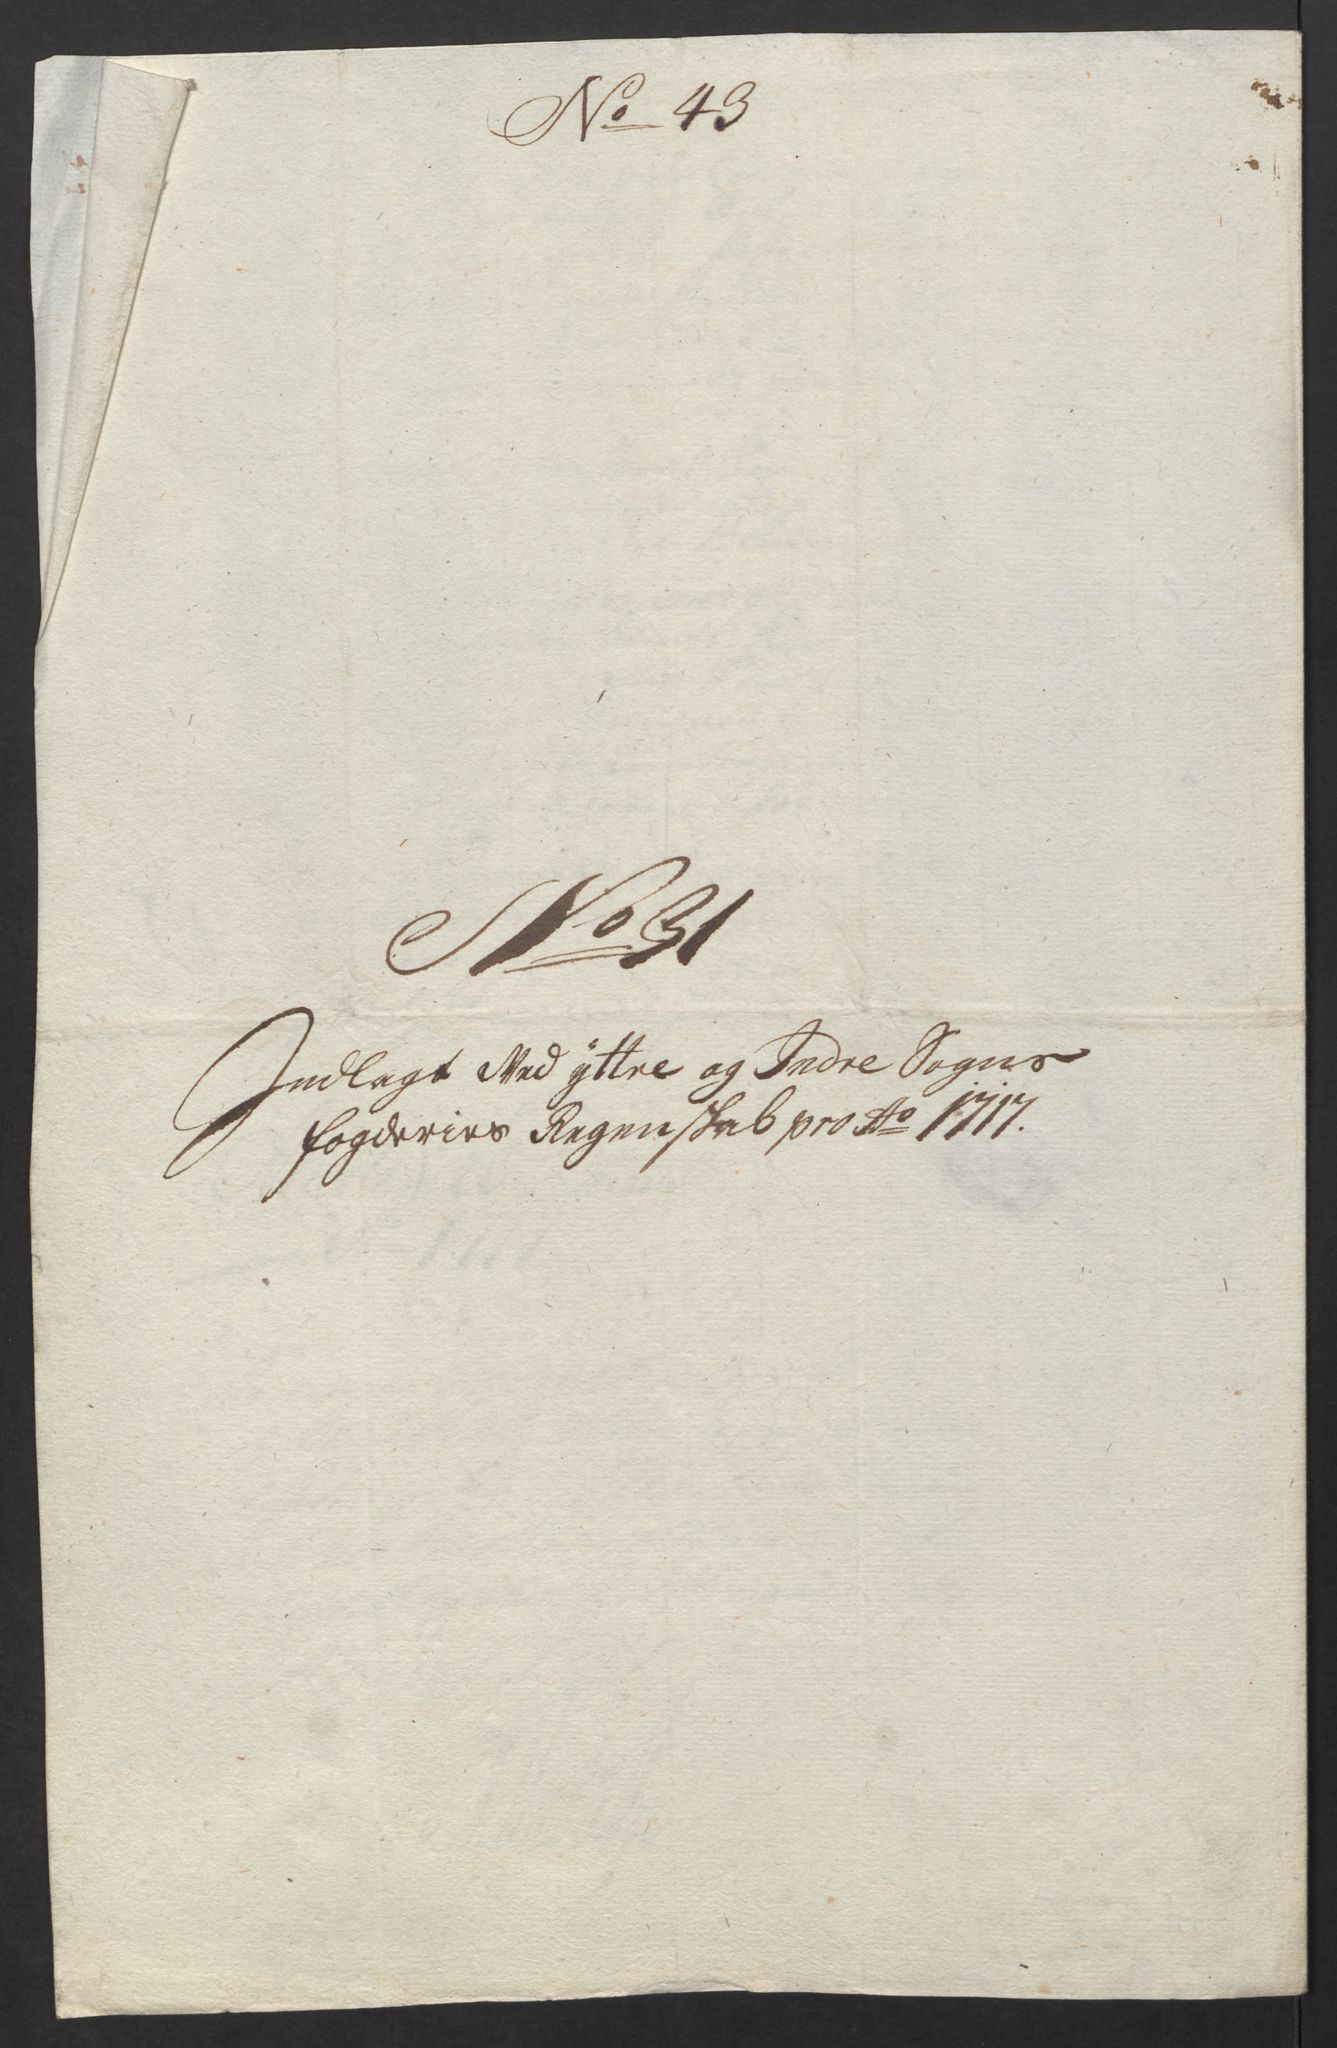 No 43
No 31
Indlagt Ved ÿttre og Indre Sogns
fogderies Regenskab pro Ao 1717.